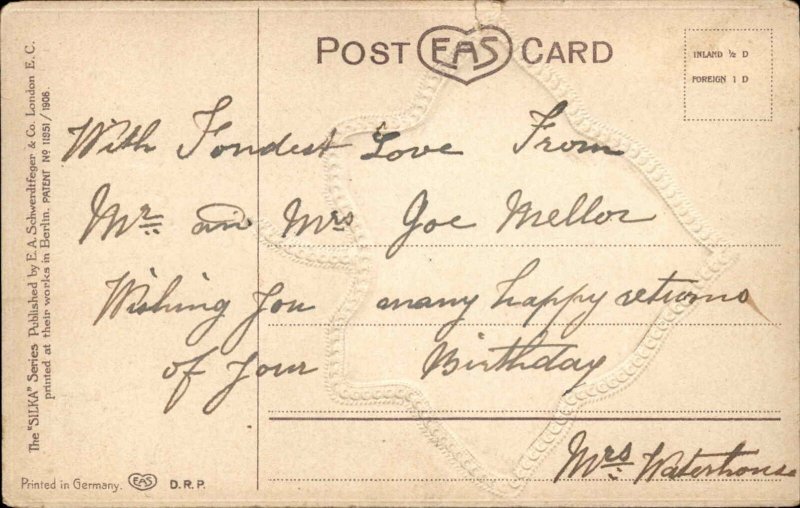 POST EAS CARD
INLAND ½ D
FOREIGN 1 D
With Fondest Love From
Mr and Mrs Joe Mellor
Wishing you many happy returns
of your Birthday
Mrs Waterhouse
The "SILKA" Series Published by E. A. Schwerdtfeger & Co. London E. C.
printed at their works in Berlin. PATENT No 11851/1906.
Printed in Germany. EAS D.R.P.